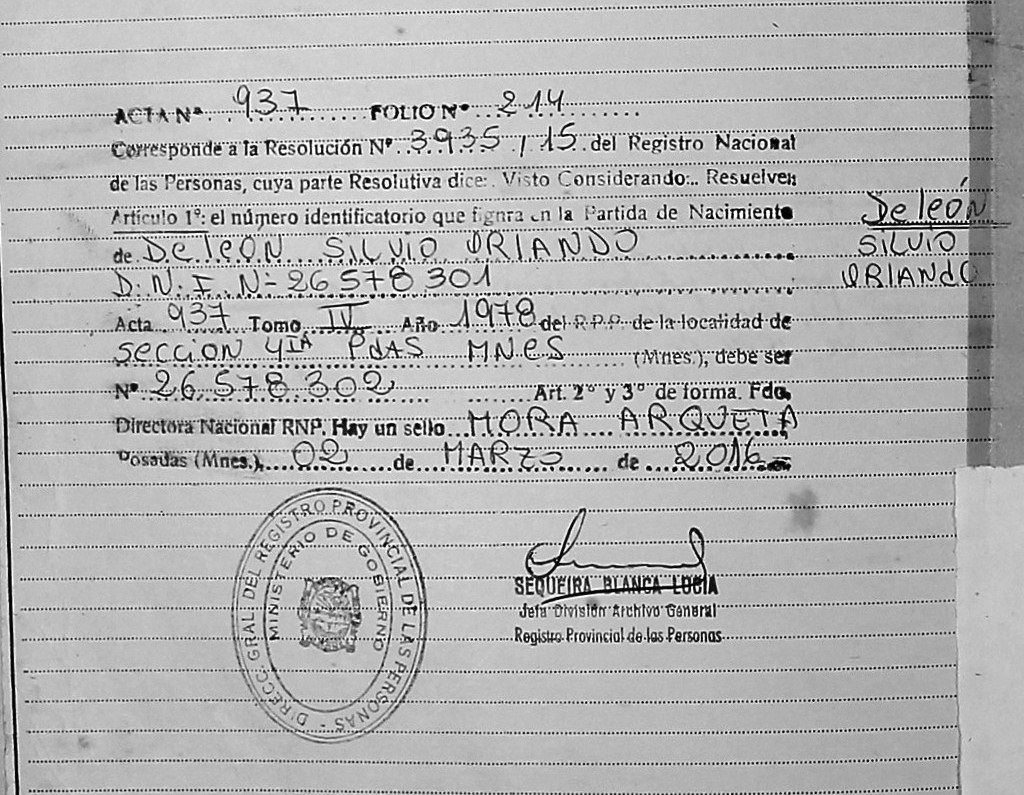 ACTA Nº 937 FOLIO Nº 214
Corresponde a la Resolución Nº 3935/15 del Registro Nacional
de las Personas, cuya parte Resolutiva dice: Visto Considerando:.. Resuelven
Artículo 1º: el número identificatorio que figura en la Partida de Nacimiento
de De león SILVIO ORIANDO
D.N.I. N- 26578301
Acta 937 Tomo IV Año 1978 del R.P.P. de la localidad de
SECCION 4IA PdAS MNES (Mnes.), debe ser
Nº 26.578.302 Art. 2º y 3º de forma. Fdo.
Directora Nacional RNP. Hay un sello MORA ARQUETA
Posadas (Mnes.), 02 de MARZO de 2016
De león
SILVIO
ORIANDO
DIRECC. GRAL DEL REGISTRO PROVINCIAL DE LAS PERSONAS -
MINISTERIO DE GOBIERNO
SEQUEIRA BLANCA LUCIA
Jefa División Archivo General
Registro Provincial de las Personas